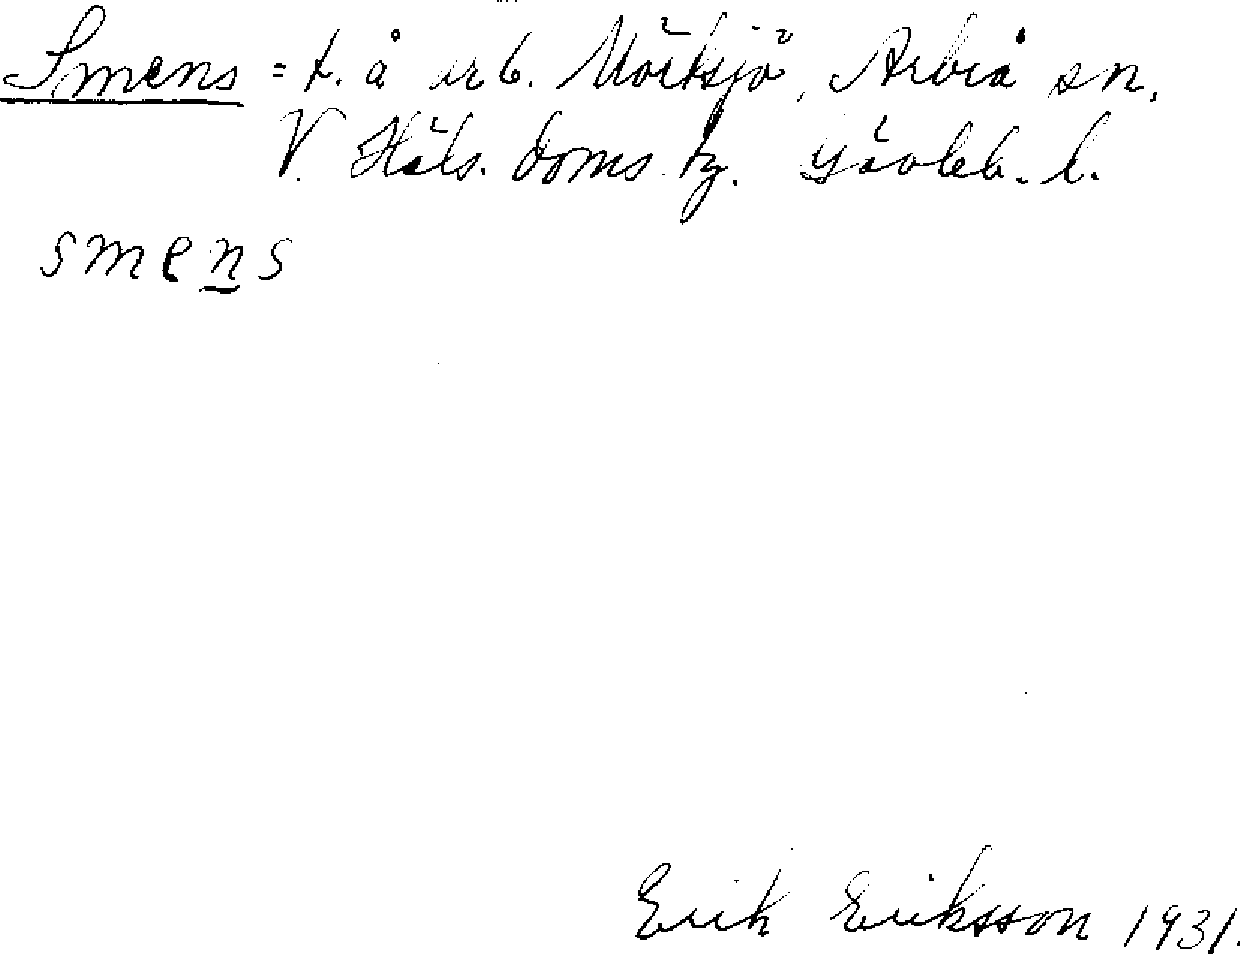 Smens = t. å urb. Mörksjö, Arbrå sn.
V. Häls. doms. tg. Gävleb. l.
smens
Erik Eriksson 1931.